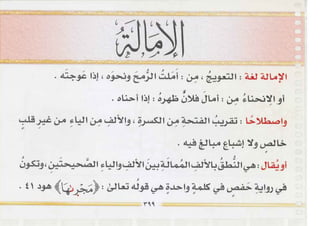 الإمالة
الإمالة لغة : التعويجُ ، مِن : أَمَلتُ الرُّمحَ ونحوَه ، إذا عَوجتَه .
أو الانحناءُ مِن : أمالَ فلانٌ ظهرهُ : إذا أحناه .
واصطلاحًا : تقريبُ الفتحةِ مِن الكسرةِ ، والألفِ مِن الياءِ من غيرِ قلبٍ
خالصٍ ولا إشباع مبالَغٍ فيه .
أو يُقال : هي النُّطقُ بالألفِ المُمالَةِ بينَ الألفِ والياءِ الصَّحيحتَينِ ، وتكونُ
في روايةِ حَفصٍ في كلمةٍ واحدةٍ هي قولُه تعالىٰ : ﴿ مَجْر۪ىٰهَا ﴾ هود ٤١ .
٣٩٩